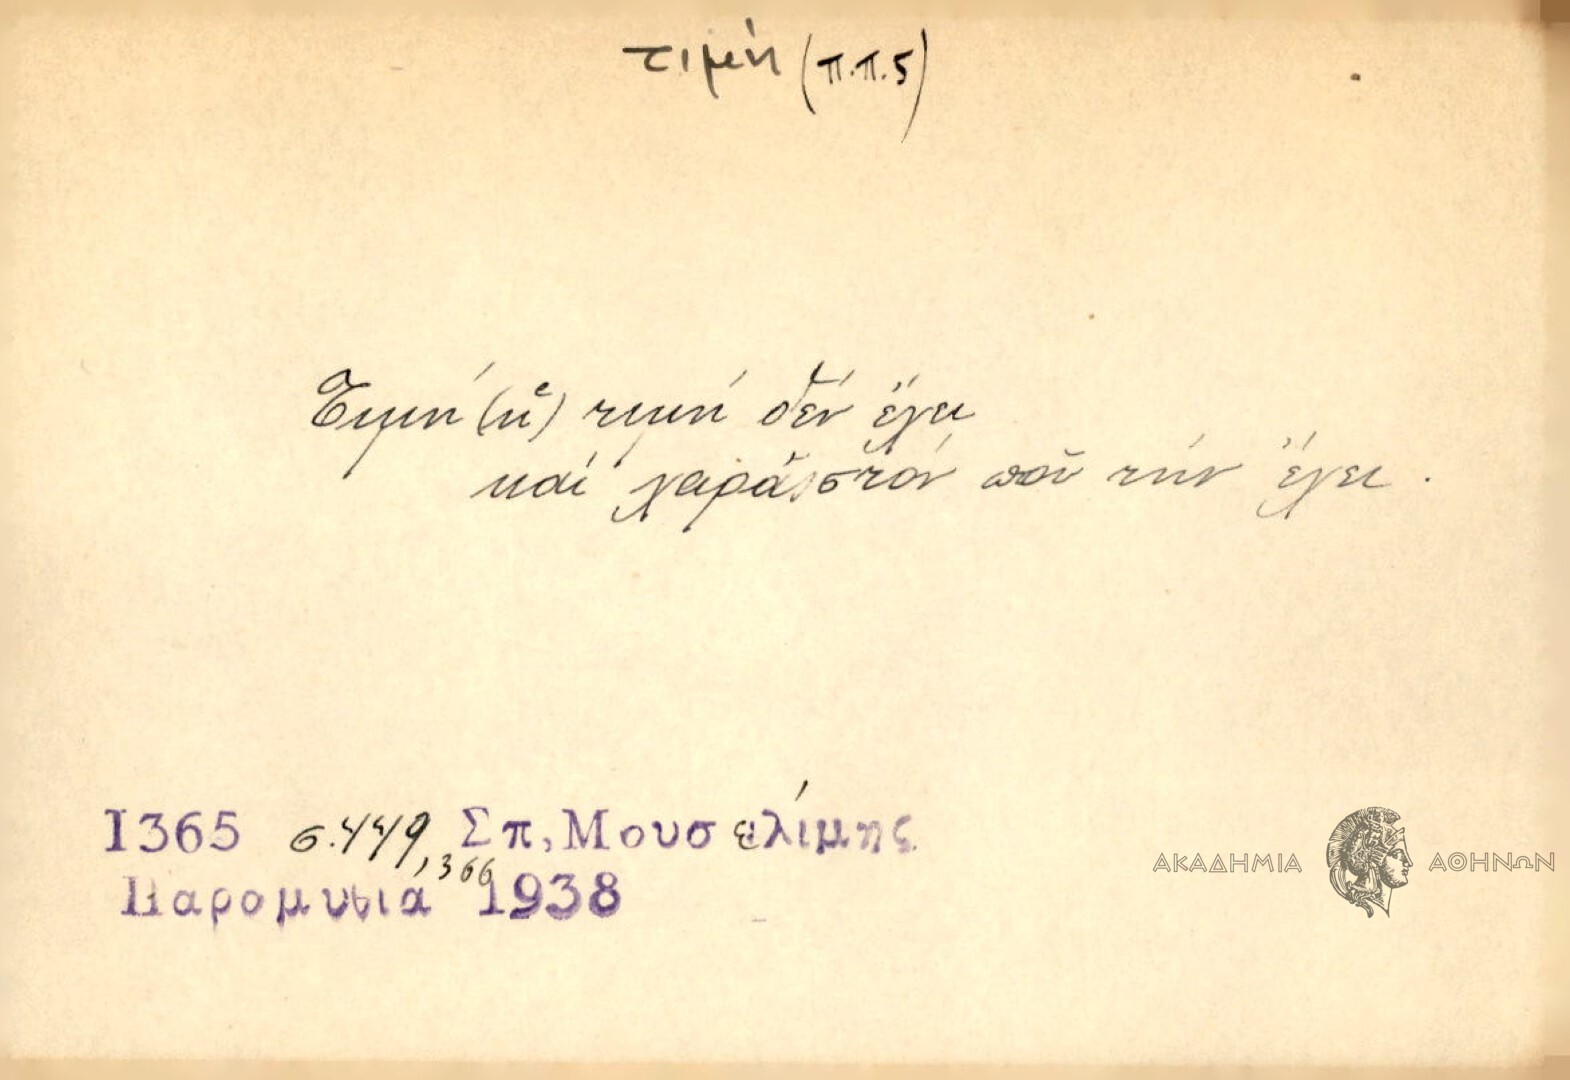 τιμή (π.π.5)
Τιμή (ἡ) τιμή δέν ἔχει
καί χαρά στόν ποῦ τήν ἔχει.
1365 σ. 449, 366 Σπ, Μουσελίμης
Παραμυθιά 1938
ΑΚΑΔΗΜΙΑ ΑΘΗΝΩΝ